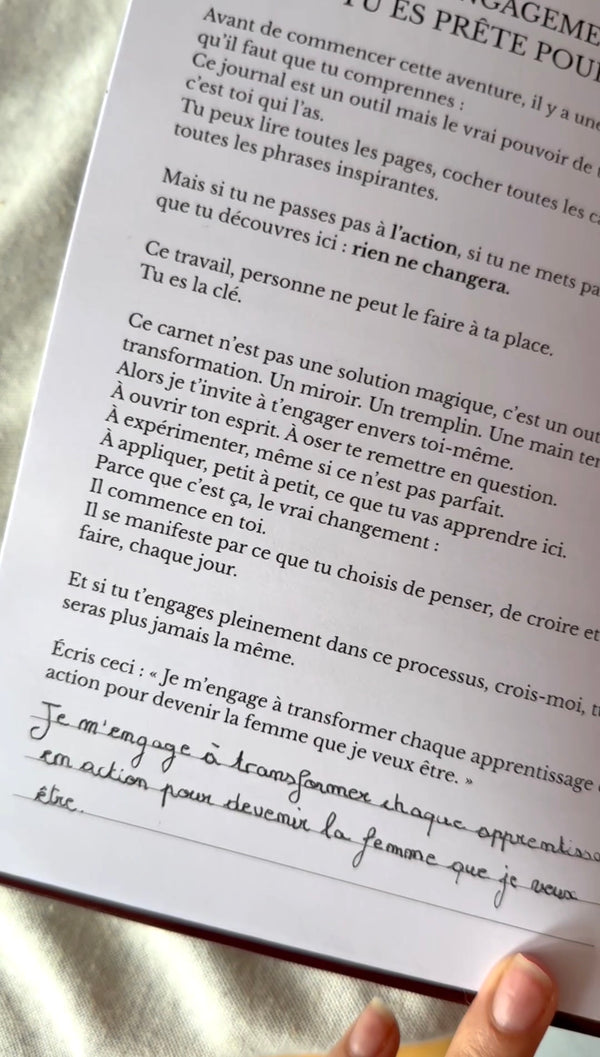 TU ES PRÊTE
Avant de commencer cette aventure, il y a une
qu'il faut que tu comprennes :
Ce journal est un outil mais le vrai pouvoir de
c'est toi qui l'as.
Tu peux lire toutes les pages, cocher toutes les
toutes les phrases inspirantes.
Mais si tu ne passes pas à l'action, si tu ne mets
que tu découvres ici : rien ne changera.
Ce travail, personne ne peut le faire à ta place.
Tu es la clé.
Ce carnet n'est pas une solution magique, c'est un
transformation. Un miroir. Un tremplin. Une main
Alors je t'invite à t'engager envers toi-même.
À ouvrir ton esprit. À oser te remettre en question.
À expérimenter, même si ce n'est pas parfait.
À appliquer, petit à petit, ce que tu vas apprendre ici.
Parce que c'est ça, le vrai changement :
Il commence en toi.
Il se manifeste par ce que tu choisis de penser, de croire et
faire, chaque jour.
Et si tu t'engages pleinement dans ce processus, crois-moi,
seras plus jamais la même.
Écris ceci : « Je m'engage à transformer chaque apprentissage
action pour devenir la femme que je veux être. »
Je m'engage à transformer chaque
en action pour devenir la femme que je veux
être.